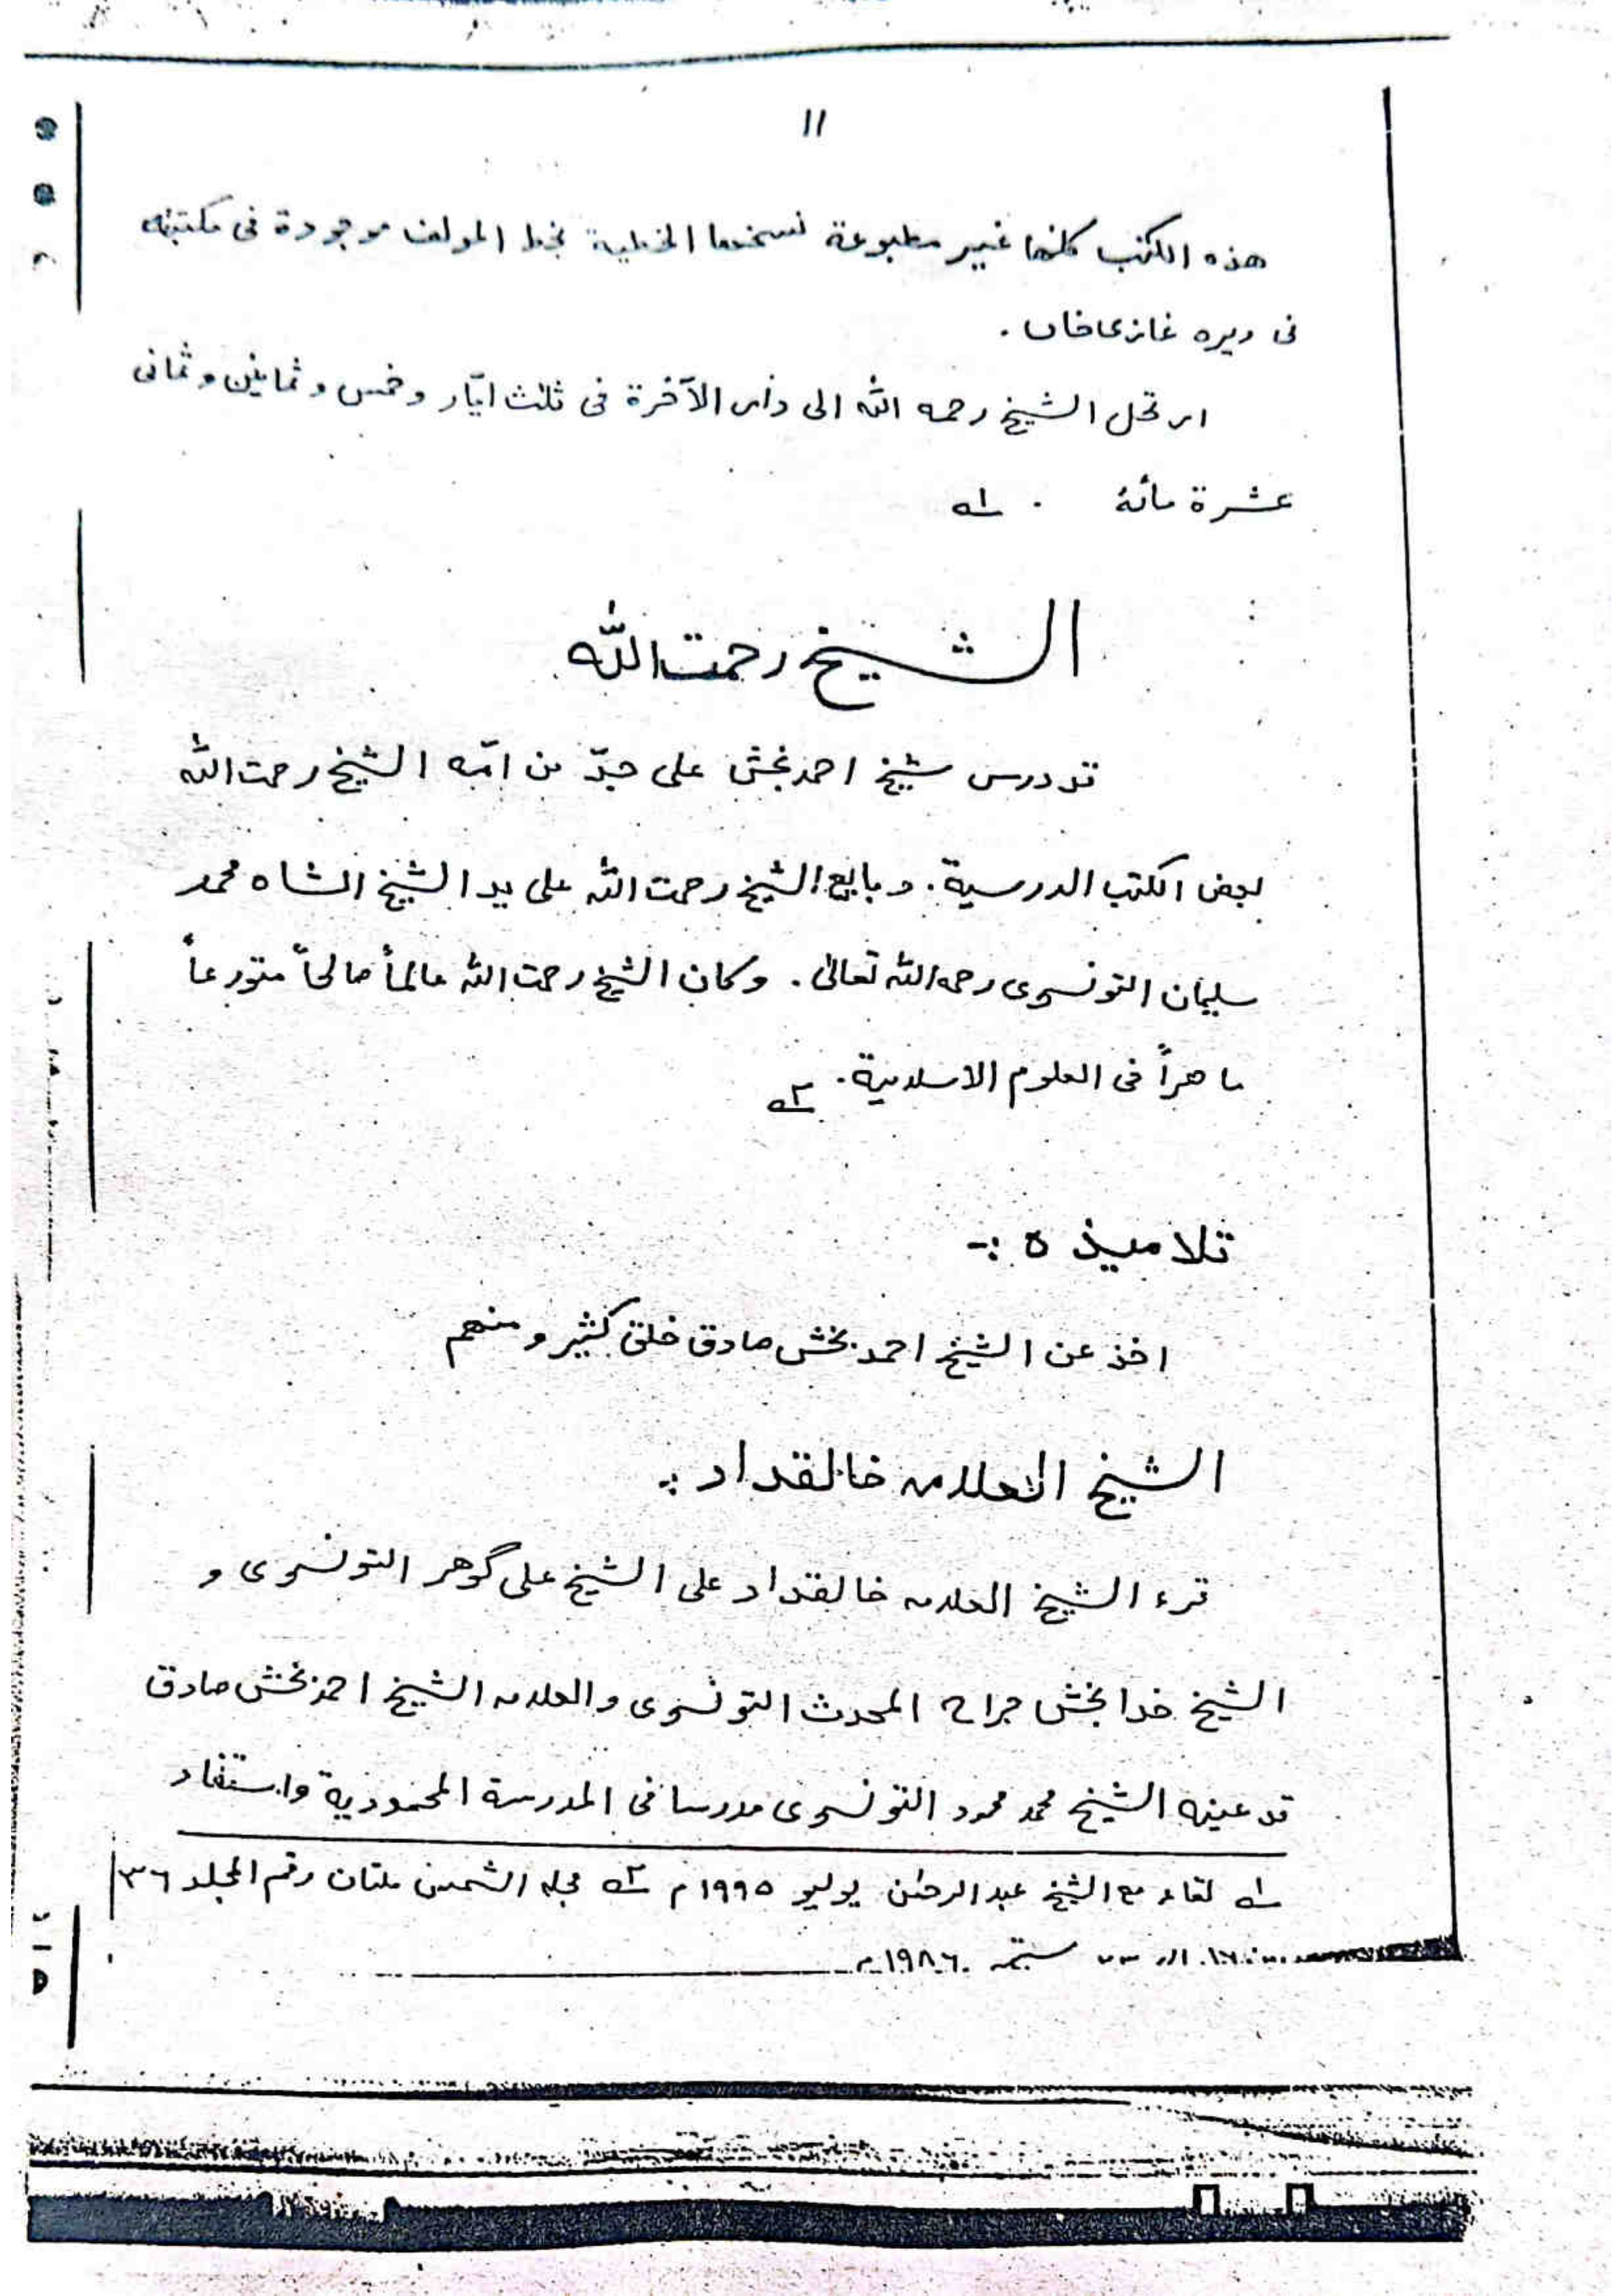 ١١
هذه الكتب كلها غير مطبوعة نسختها الخطية بخط المولف موجودة فى مكتبته
فى ديره غازى خان .
ارتحل الشيخ رحمه الله الى دار الآخرة فى ثلث ايّار و خمس و ثمانين و ثمانى
عشرة مائة . ١ــه
الشيخ رحمت الله
قد درس شيخ احمد بخش على جدّ من امّه الشيخ رحمت الله
بعض الكتب الدرسية . و بايع الشيخ رحمت الله على يد الشيخ الشاه محمد
سليمان التونسوى رحمه الله تعالىٰ . وكان الشيخ رحمت الله عالماً صالحاً متورعاً
ماهراً فى العلوم الاسلامية . ٢ــه
تلاميذه :-
اخذ عن الشيخ احمد بخش صادق خلق كثير و منهم
الشيخ العلامه خالقداد :
قرء الشيخ العلامه خالقداد على الشيخ على گوهر التونسوى و
الشيخ خدا بخش جراح المحدث التونسوى والعلامه الشيخ احمد بخش صادق
قد عينه الشيخ محمد محمود التونسوى مدرسا فى المدرسة المحمودية واستفاد
١ــه لقاء مع الشيخ عبد الرحمٰن يوليو ١٩٩٥م ٢ــه مجله الشمس ملتان رقم المجلد ٣٦
ستمبر ١٩٨٦م